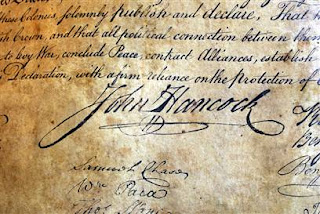 these Colonies, solemnly publish and declare, That
ish Crown, and that all political connection between them
to levy War, conclude Peace, contract Alliances, establish
Declaration, with a firm reliance on the protection of
John Hancock
Samuel Chase
Wm Paca
Thos Stone